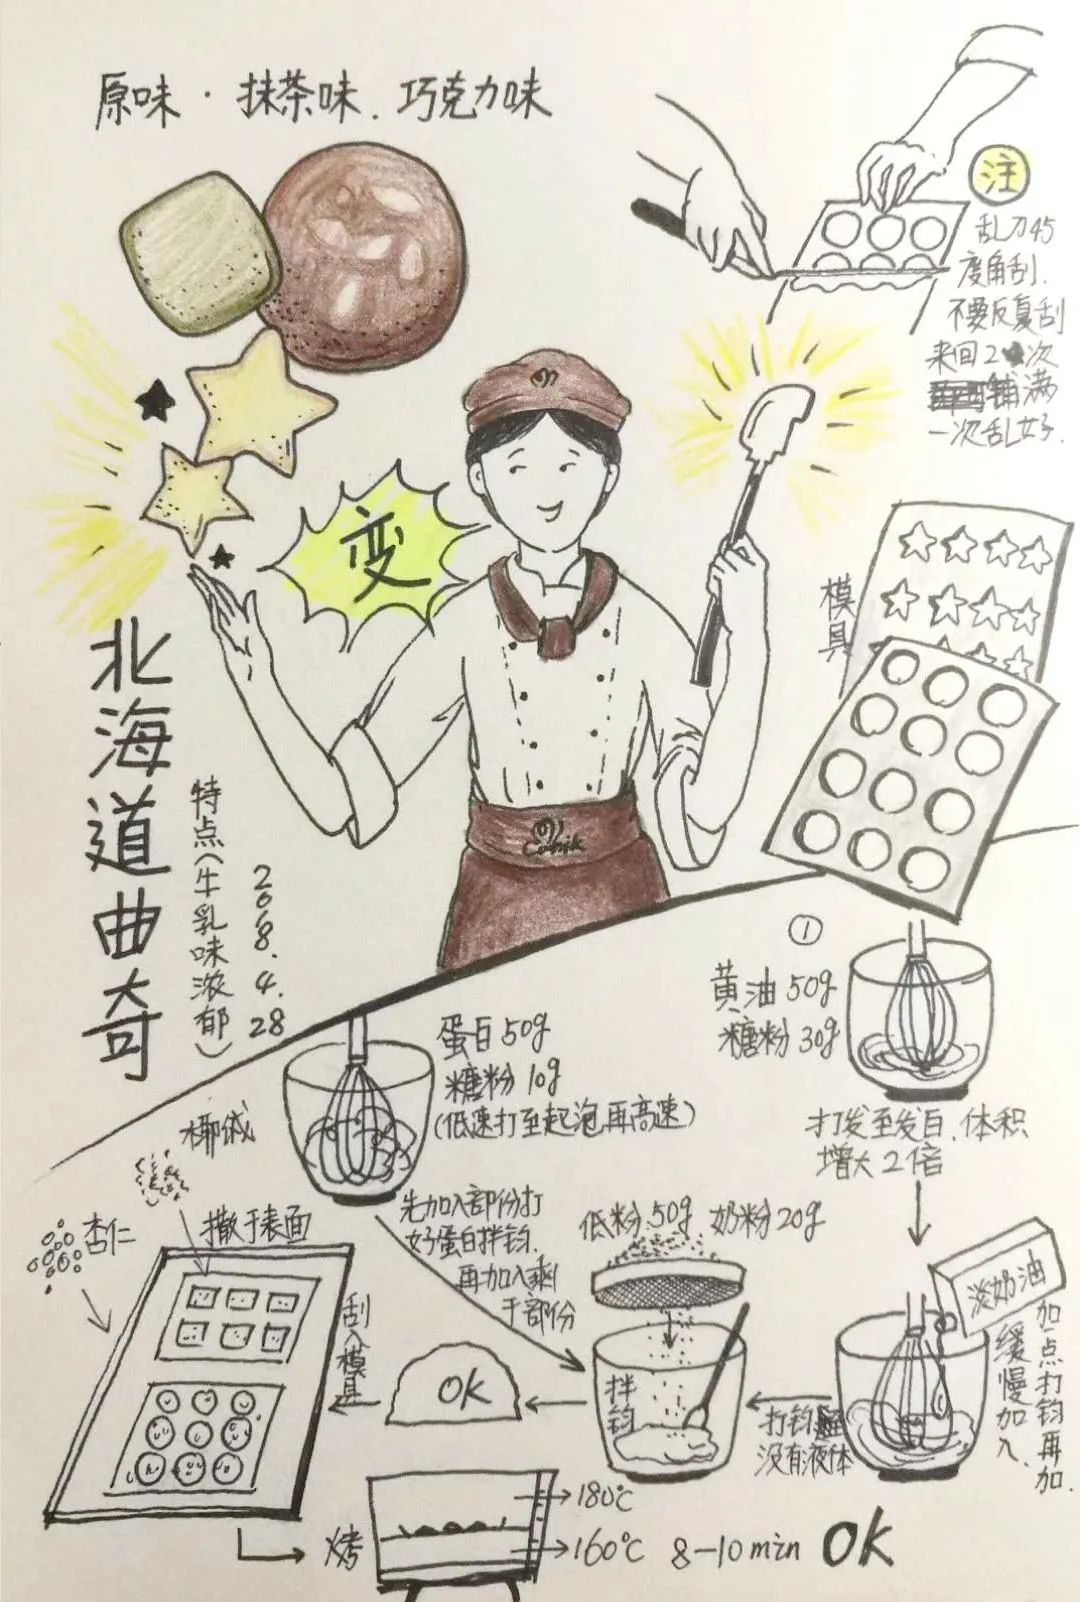 原味·抹茶味、巧克力味
注
乱刀45
度角刮.
不要反复刮
来回2次
铺满
一次乱好.
变
模具
北海道曲奇
特点(牛乳味浓郁)
2018.4.28
①
黄油50g
糖粉30g
打发至发白、体积
增大2倍
淡奶油
加一点打钧再加.
缓慢加入.
打钧
没有液体
低粉50g 奶粉20g
拌钧
蛋白50g
糖粉10g
(低速打至起泡再高速)
先加入部份打
好蛋白拌钧.
再加入剩
于部份
OK
刮入模具
椰
杏仁
撒于表面
烤
180℃
160℃ 8-10min OK